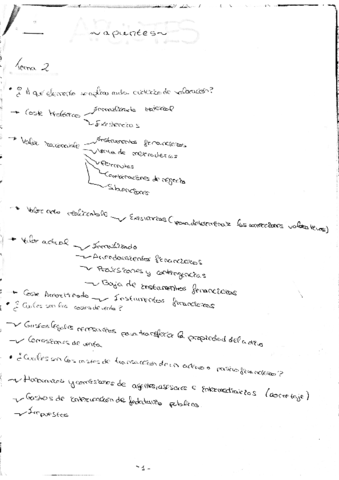 ~apuntes~
Tema 2
• ¿A que elemento se aplican estos criterios de valoración?
→ Coste histórico Inmovilizado material
Existencias
→ Valor razonable Instrumentos financieros
Venta de
Permutas
Combinaciones de negocio
Subvenciones
→ Valor neto realizable Existencias (para determinar las correcciones valorativas)
→ Valor actual Inmovilizado
Arrendamientos financieros
Provisiones y contingencias
Baja de instrumentos financieros
→ Coste Amortizado Instrumentos financieros
• ¿Cuáles son los costes de venta?
Gastos legales necesarios para transferir la propiedad del activo
Comisiones de venta
• ¿Cuáles son los costes de transacción de un activo o pasivo financiero?
Honorarios y comisiones de agentes, asesores e intermediarios (corretaje)
Gastos de intervención de fedatario público
Impuestos
-1-